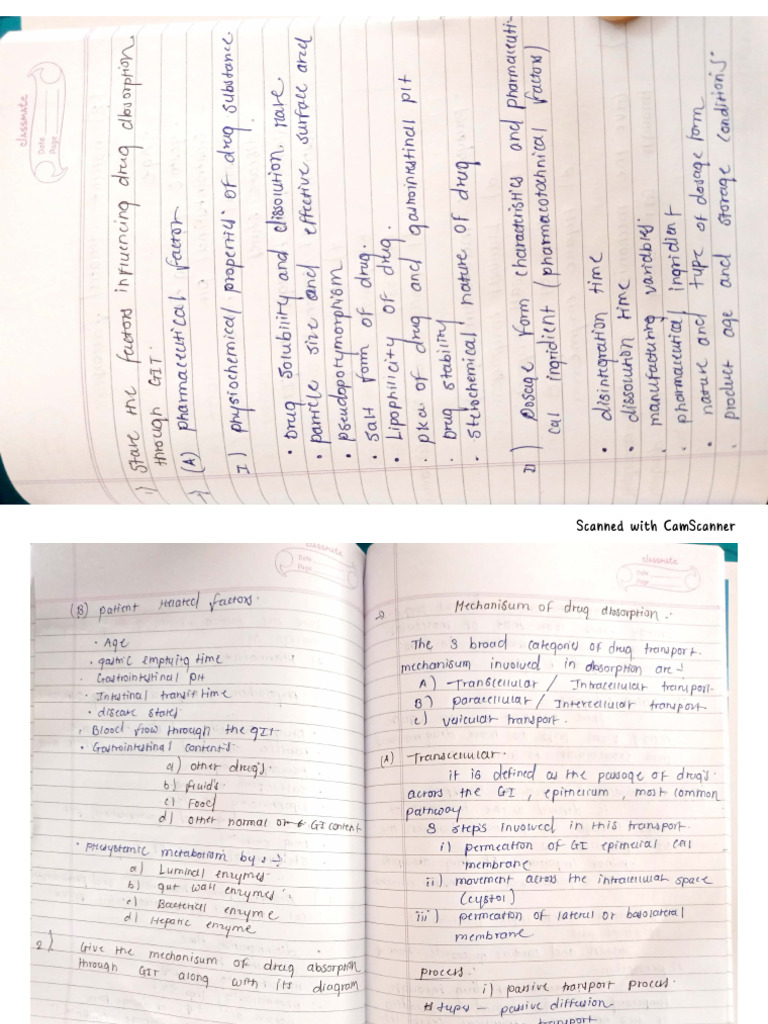 classmate
Date
Page
1) State the factors influencing drug absorption
through GIT.
→ (A) pharmaceutical factor
I) physiochemical properties of drug substance
• Drug solubility and dissolution rate.
• particle size and effective surface area
• pseudopolymorphism
• Salt form of drug.
• Lipophilicity of drug.
• pka of drug and gastrointestinal pH
• Drug stability
• sterochemical nature of drug
II) Dosage form characteristics and pharmaceuti-
cal ingridient (pharmacotachnical factors)
• disintegration time
• dissolution time
• manufacturing variables.
• pharmaceutical ingridient
• nature and type of dosage form
• product age and storage conditions.
Scanned with CamScanner
classmate
Date
Page
(B) patient related factors.
• Age
• gastric emptying time
• Gastrointestinal pH
• Intestinal transit time
• disease states
• Blood flow through the GIT
• Gastrointestinal contents
a) other drug's
b) fluid's
c) Food
d) other normal GI content
• presystemic metabolism by :→
a) Luminal enzymes
b) gut wall enzymes
c) Bacterial enzyme
d) Hepatic enzyme
2) Give the mechanisum of drug absorption
through GIT along with its diagram
classmate
Date
Page
→ Mechanisum of drug absorption.:
The 3 broad categories of drug transport
mechanisum involved in absorption are →
A) Transcellular / Intracellular transport.
B) paracellular / Intercellular transport
c) vesicular transport.
(A) Transcellular.
it is defined as the passage of drug's
across the GI, epithelium, most common
pathway
3 steps involved in this transport.
i) permeation of GI epithelial cell
membrane
ii) movement across the intracellular space
(cystol)
iii) permeation of lateral or basolateral
membrane
process.
i) passive transport process.
# types - passive diffusion
transport